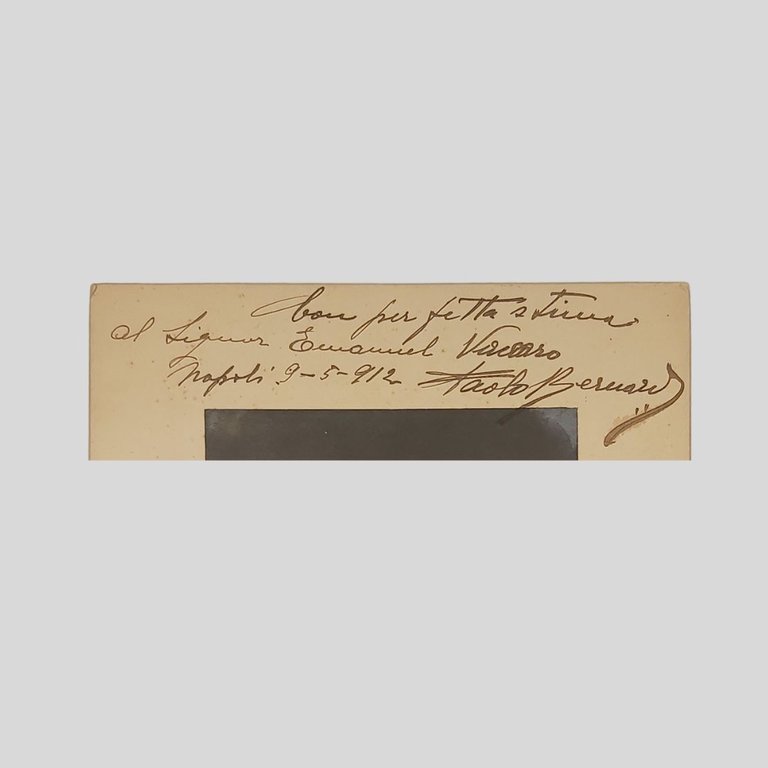 Con perfetta stima
al Signor Emanuel Vaccaro
Napoli 9-5-912 Paolo Bernard